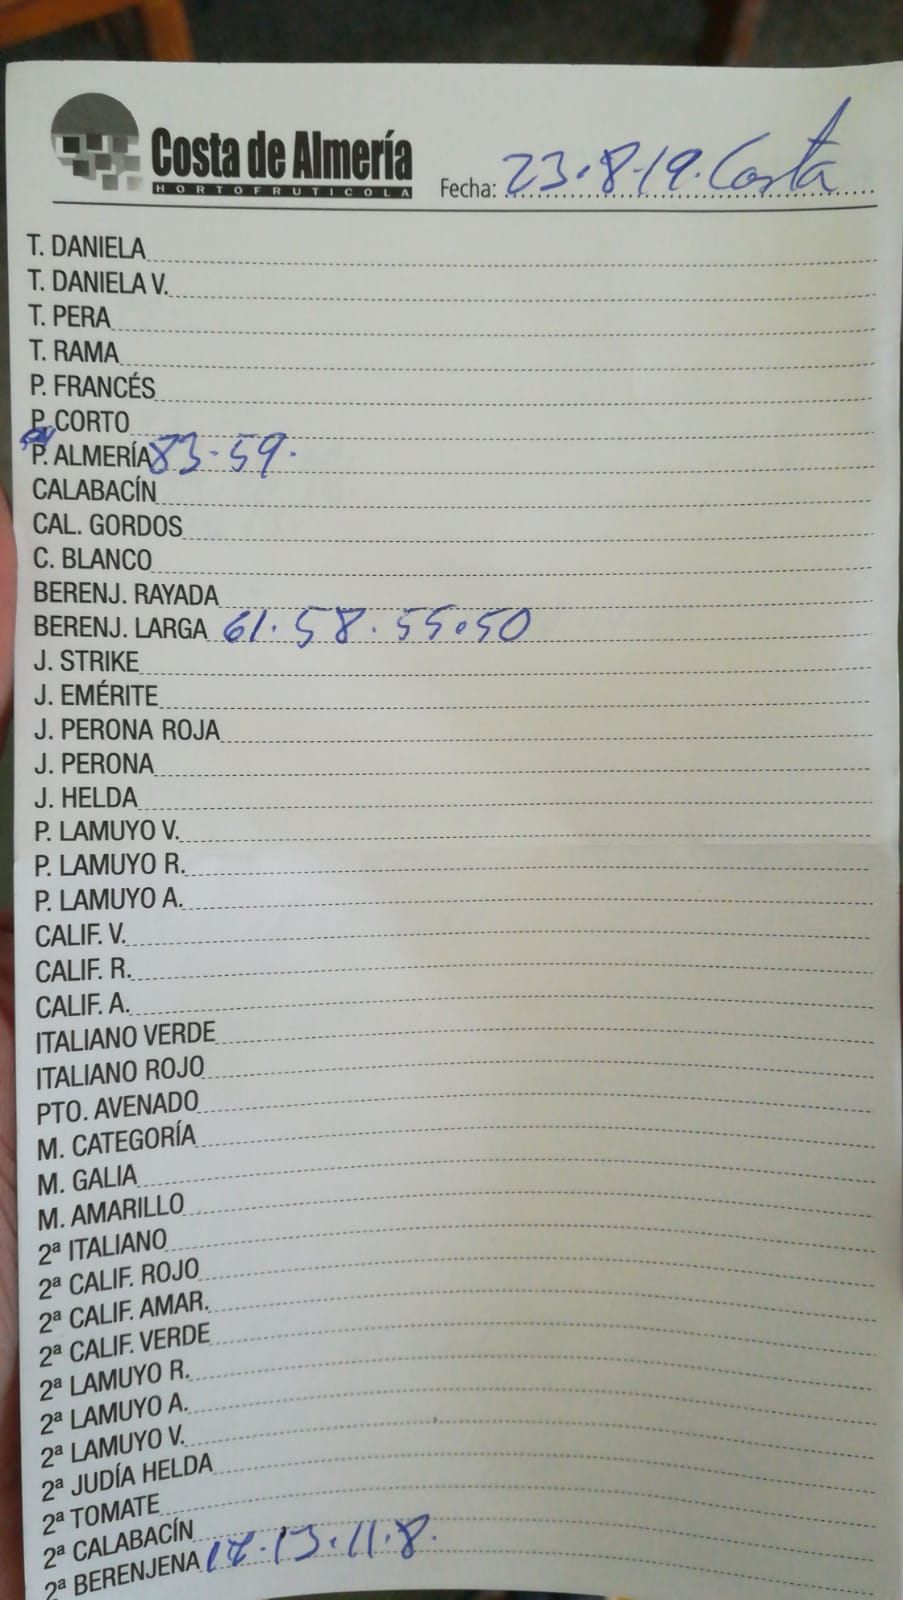 Costa de Almería
HORTOFRUTICOLA
Fecha: 23.8.19. Costa
T. DANIELA
T. DANIELA V.
T. PERA
T. RAMA
P. FRANCÉS
P. CORTO
P. ALMERÍA 83.59.
CALABACÍN
CAL. GORDOS
C. BLANCO
BERENJ. RAYADA
BERENJ. LARGA 61.58.55.50
J. STRIKE
J. EMÉRITE
J. PERONA ROJA
J. PERONA
J. HELDA
P. LAMUYO V.
P. LAMUYO R.
P. LAMUYO A.
CALIF. V.
CALIF. R.
CALIF. A.
ITALIANO VERDE
ITALIANO ROJO
PTO. AVENADO
M. CATEGORÍA
M. GALIA
M. AMARILLO
2ª ITALIANO
2ª CALIF. ROJO
2ª CALIF. AMAR.
2ª CALIF. VERDE
2ª LAMUYO R.
2ª LAMUYO A.
2ª LAMUYO V.
2ª JUDÍA HELDA
2ª TOMATE
2ª CALABACÍN
2ª BERENJENA 13.11.8.